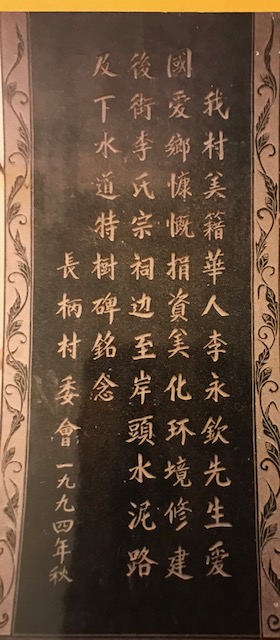 我村美籍華人李永欽先生愛
國愛鄉慷慨捐資美化环境修建
後街李氏宗祠边至岸頭水泥路
及下水道特樹碑銘念
長柄村委會一九九四年秋